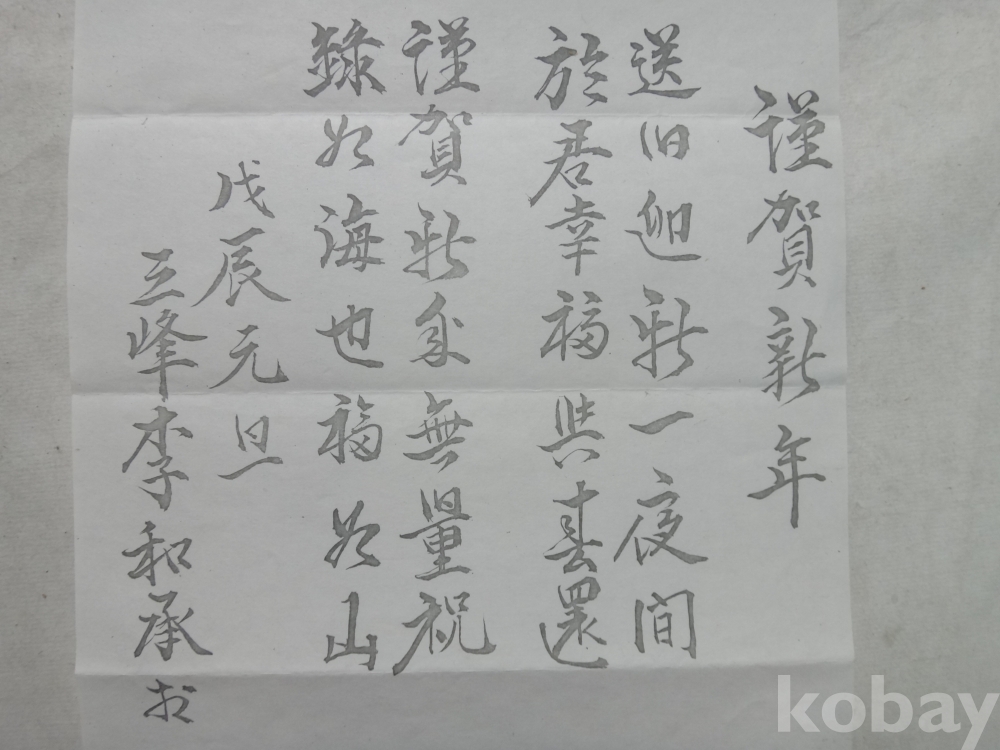 謹賀新年
送旧迎新一夜間
於君幸福與春還
謹賀新年無量祝
錄如海也福如山
戊辰元旦
三峰李和承书
kobay